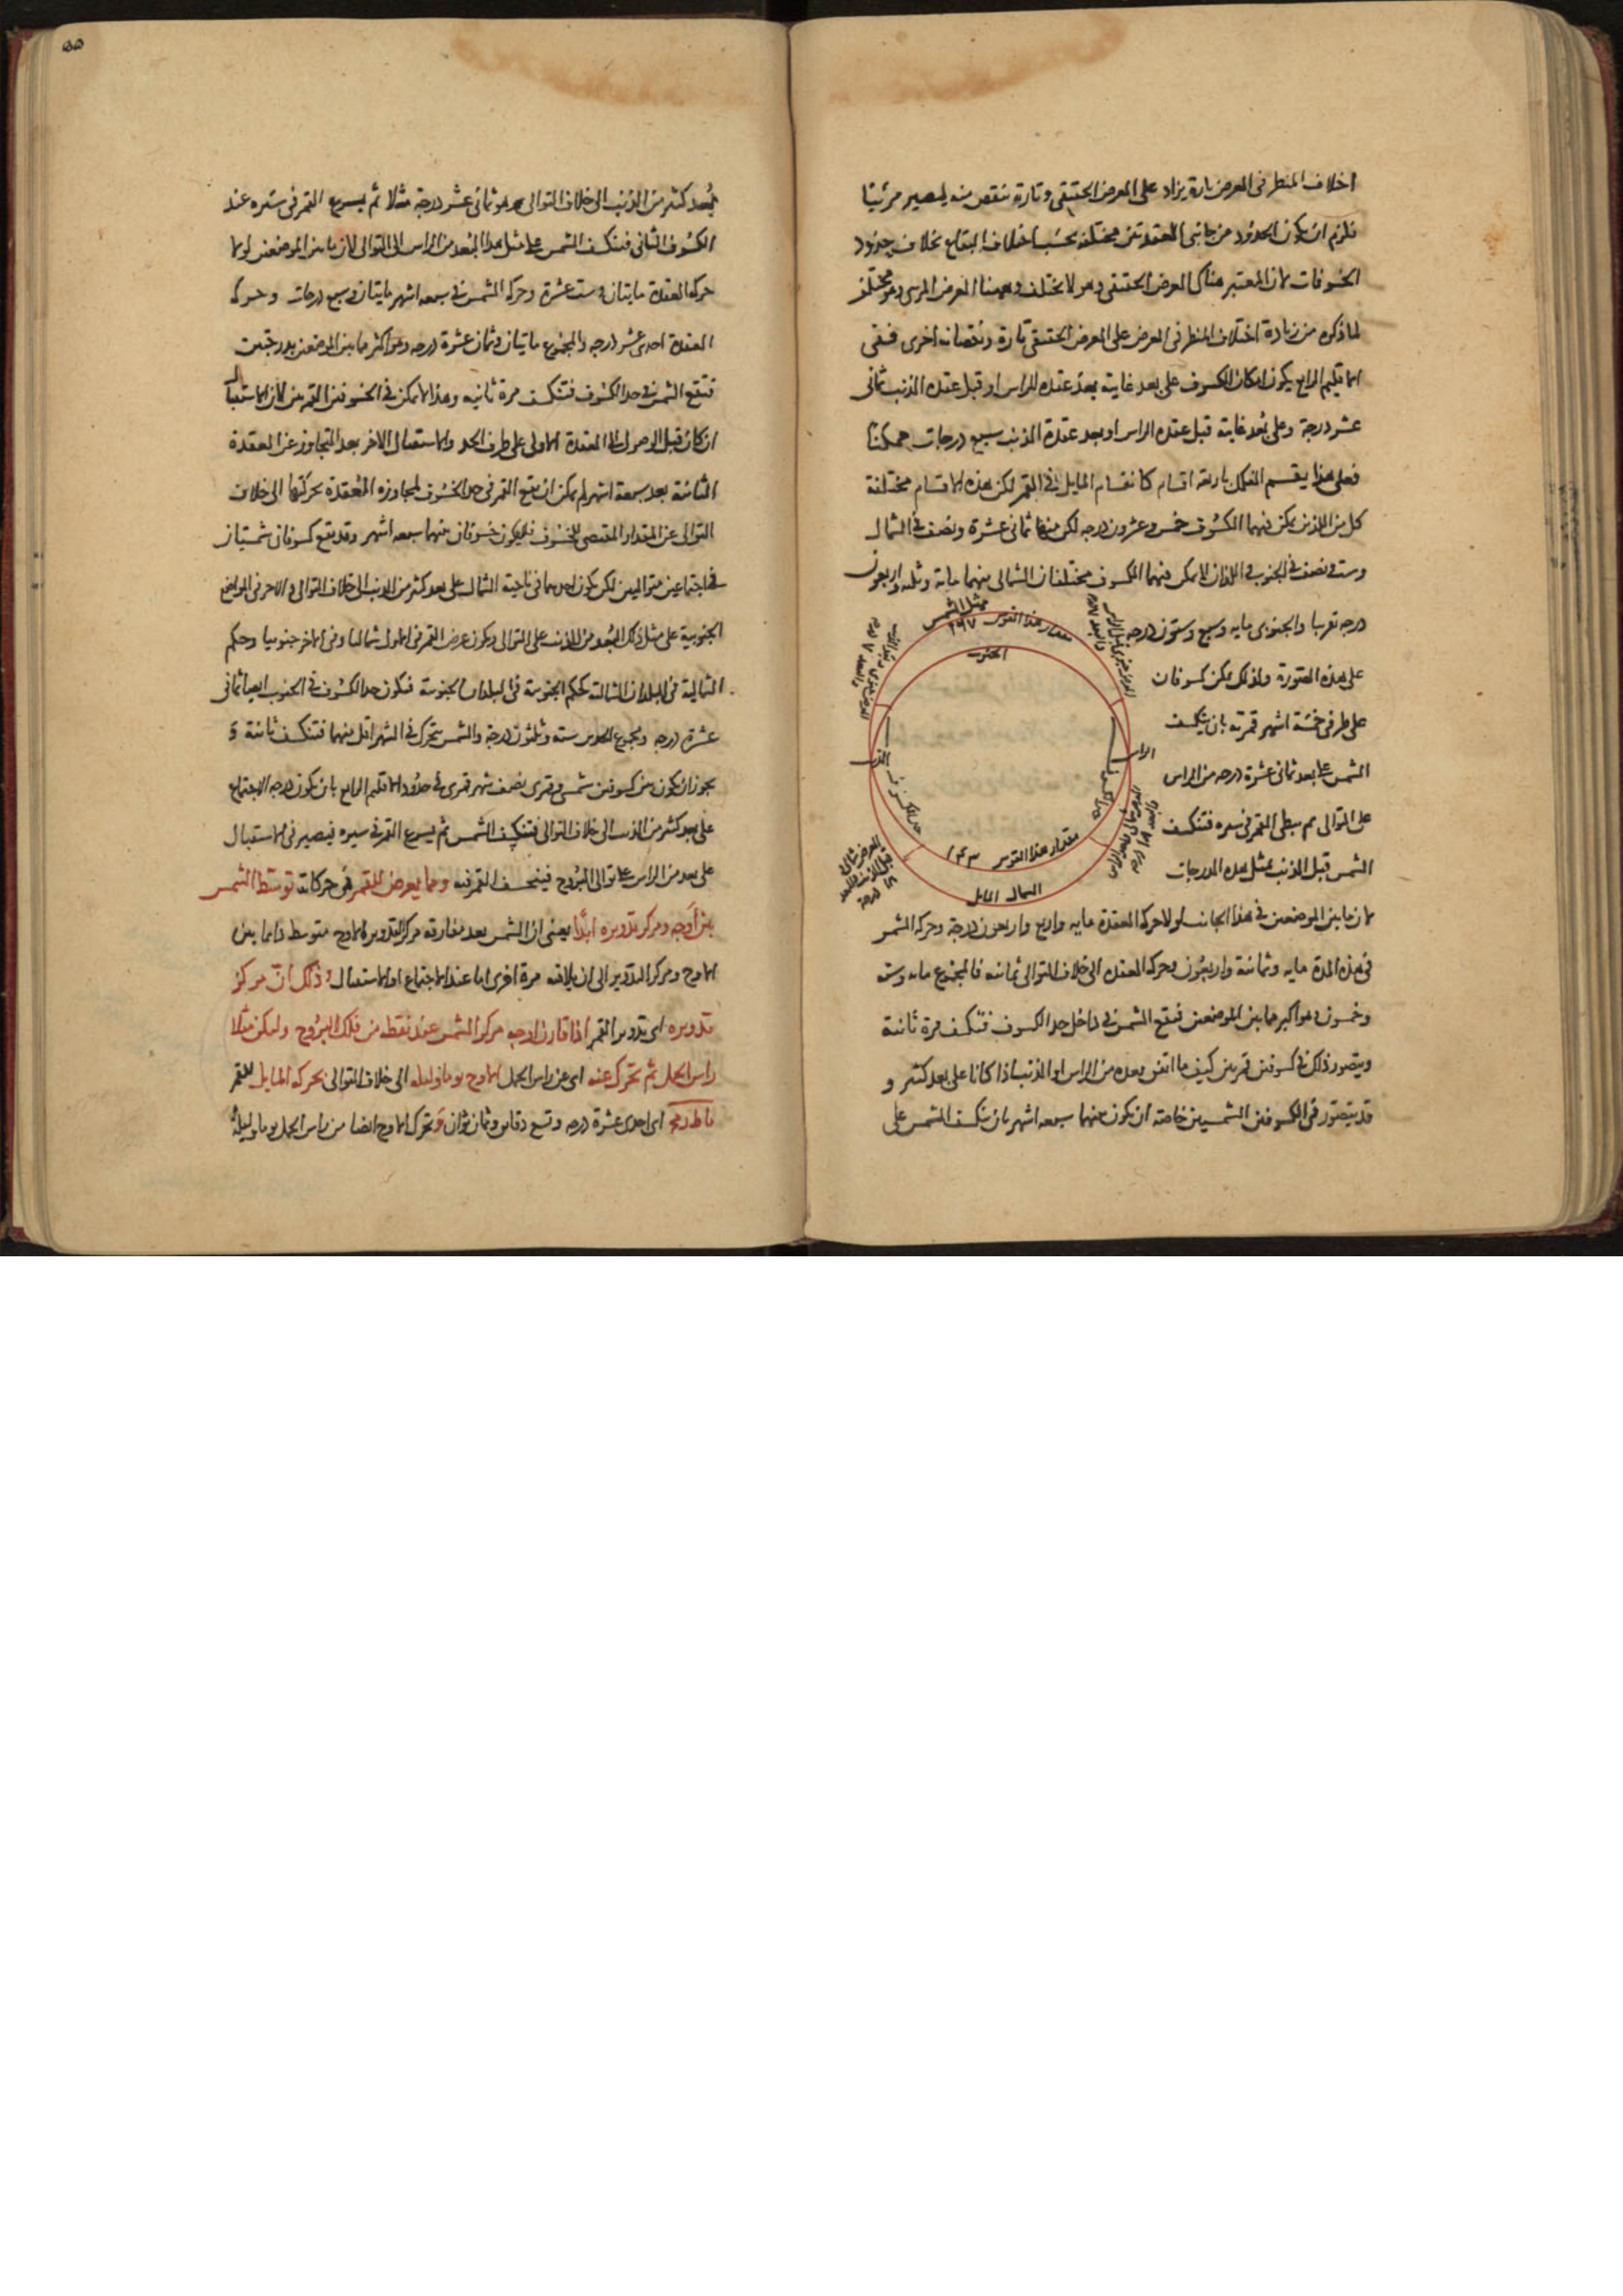 اختلاف المنظر فى العرض تارة يزاد على العرض الحقيقى وتارة ينقص منه ليصير مرئيا
فلزم ان يكون الحدود من جانبى العقدتين مختلفة بحسب اختلاف البقاع بخلاف حدود
الخسوفات لان المعتبر هناك العرض الحقيقى وهو لا يختلف وههنا العرض المرىى وهو مختلف
لما ذكره من زيادة اختلاف المنظر فى العرض على العرض الحقيقى تارة ونقصانه اخرى ففى
الاقليم الرابع يكون امكان الكسوف على بعد غايته بعد عقده الراس او قبل عقده الذنب ثمانى
عشر درجة وعلى بعد غايته قبل عقده الراس او بعد عقدة الذنب سبع درجات ممكنا
فعلى هذا يقسم الفلك باربعة اقسام كانقسام المايل فى القمر لكن هذه الاقسام مختلفة
كل من اللذين يمكن فيهما الكسوف خمس وعشرون درجه لكن منها ثمانى عشرة ونصف فى الشمال
وست ونصف فى الجنوب واللذان لا يمكن فيهما الكسوف مختلفان الشمالى منهما ماية وثلث واربعون
درجه تقربا والجنوبى مايه وسبع وستون درجه
على هذه الصورة ولذلك يمكن كسوفان
على طرفى خمسة اشهر قمرية بان ينكسف
الشمس على بعد ثمانى عشرة درجه من الراس
على التوالى ثم يبطى القمر فى سيره فتنكسف
الشمس قبل الذنب بمثل هذه الدرجات
ممثل الشمس
مقدار هذا القوس ١٦٧
الجنوب
الراس
الذنب
حد الكسوف
مقدار هذا القوس ١٤٣
الشمال المايل
العرض شمالى
قبل الذنب والبعد
١٨ درجة
لان ما بين الموضعين فى هذا الجانب لولا حركة العقدة مايه واربع واربعون درجة وحركه الشمس
فى هذه المدة مايه وثمانية واربعون وحركه العقده الى خلاف التوالى ثمانيه فالمجموع مايه وسته
وخمسون وهو اكبر ما بين الموضعين فتقع الشمس فى داخل حد الكسوف فتنكسف مرة ثانية
ويتصور ذلك فى كسوفين قمريين كيف ما اتفق بعده من الراس او الذنب اذا كانا على بعد كثير و
قد يتصور فى الكسوفين الشمسيين خاصة ان يكون بينهما سبعه اشهر بان ينكسف الشمس على
بُعد كثير من الذنب الى خلاف التوالى هو ثمانى عشر درجة مثلا ثم يسرع القمر فى سيره عند
الكسوف الثانى فتنكسف الشمس على مثل هذا البعد من الراس الى التوالى لان ما بين الموضعين لولا
حركه العقدة مايتان وست عشرة وحركه الشمس فى سبعه اشهر مايتان وسبع درجات وحركه
العقدة احدى عشر درجه والمجموع مايتان وثمان عشرة درجه وهو اكثر ما بين الموضعين بدرجتين
فتقع الشمس فى حد الكسوف فتنكسف مرة ثانيه وهذا لا يمكن فى الخسوفين القمريين لان الاستقبال
ان كان قبل الوصول الى العقدة الاولى على طرف الحد والاستقبال الاخر بعد التجاوز عن العقدة
الثانية بعد سبعة اشهر لم يمكن ان يقع القمر فى حد الخسوف لمجاوزه العقدة بحركتها الى خلاف
التوالى عن المقدار المقتضى للخسوف فلا يكون خسوفان بينهما سبعه اشهر وقد يقع كسوفان شمسيان
فى اجتماعين متواليين لكن يكون احدهما فى ناحية الشمال على بعد كثير من الذنب الى خلاف التوالى والاخر فى المواضع
الجنوبية على مثل ذلك البُعد من الذنب على التوالى ويكون عرض القمر فى الاول شماليا وفى الاخر جنوبيا وحكم
الشمالية فى البلدان الشمالية كحكم الجنوبية فى البلدان الجنوبية فيكون حد الكسوف فى الجنوب ايضا ثمانى
عشرة درجه ومجموع الحدين سته وثلثون درجة والشمس تتحرك فى الشهر اقل منهما فتنكسف ثانية و
يجوز ان يكون بين كسوفين شمسى وقمرى نصف شهر قمرى فى حدود الاقليم الرابع بان يكون درجه الاجتماع
على بعد كثير من الذنب الى خلاف التوالى فتنكسف الشمس ثم يسرع القمر فى سيره فيصير فى الاستقبال
على بعد من الراس على توالى البروج فينخسف القمر فيه ومما يعرض للقمر فى حركاته توسط الشمس
بين اوجه ومركز تدويره ابدًا يعنى ان الشمس بعد مفارقه مركز التدوير الاوج متوسط دايما بين
الاوج ومركز التدوير الى ان يلاقيه مرة اخرى اما عند الاجتماع او الاستقبال وذلك ان مركز
تدويره اى تدوير القمر اذا قارن اوجه مركز الشمس عند نقطه من فلك البروج وليكن مثلا
راس الحمل ثم تحرك عنه اى عن راس الحمل الاوج يوما وليله الى خلاف التوالى بحركه المايل للقمر
يا ط اى احدى عشرة درجه وتسع دقايق وثمان ثوان وتحرك الاوج ايضا من راس الحمل يوما وليلة